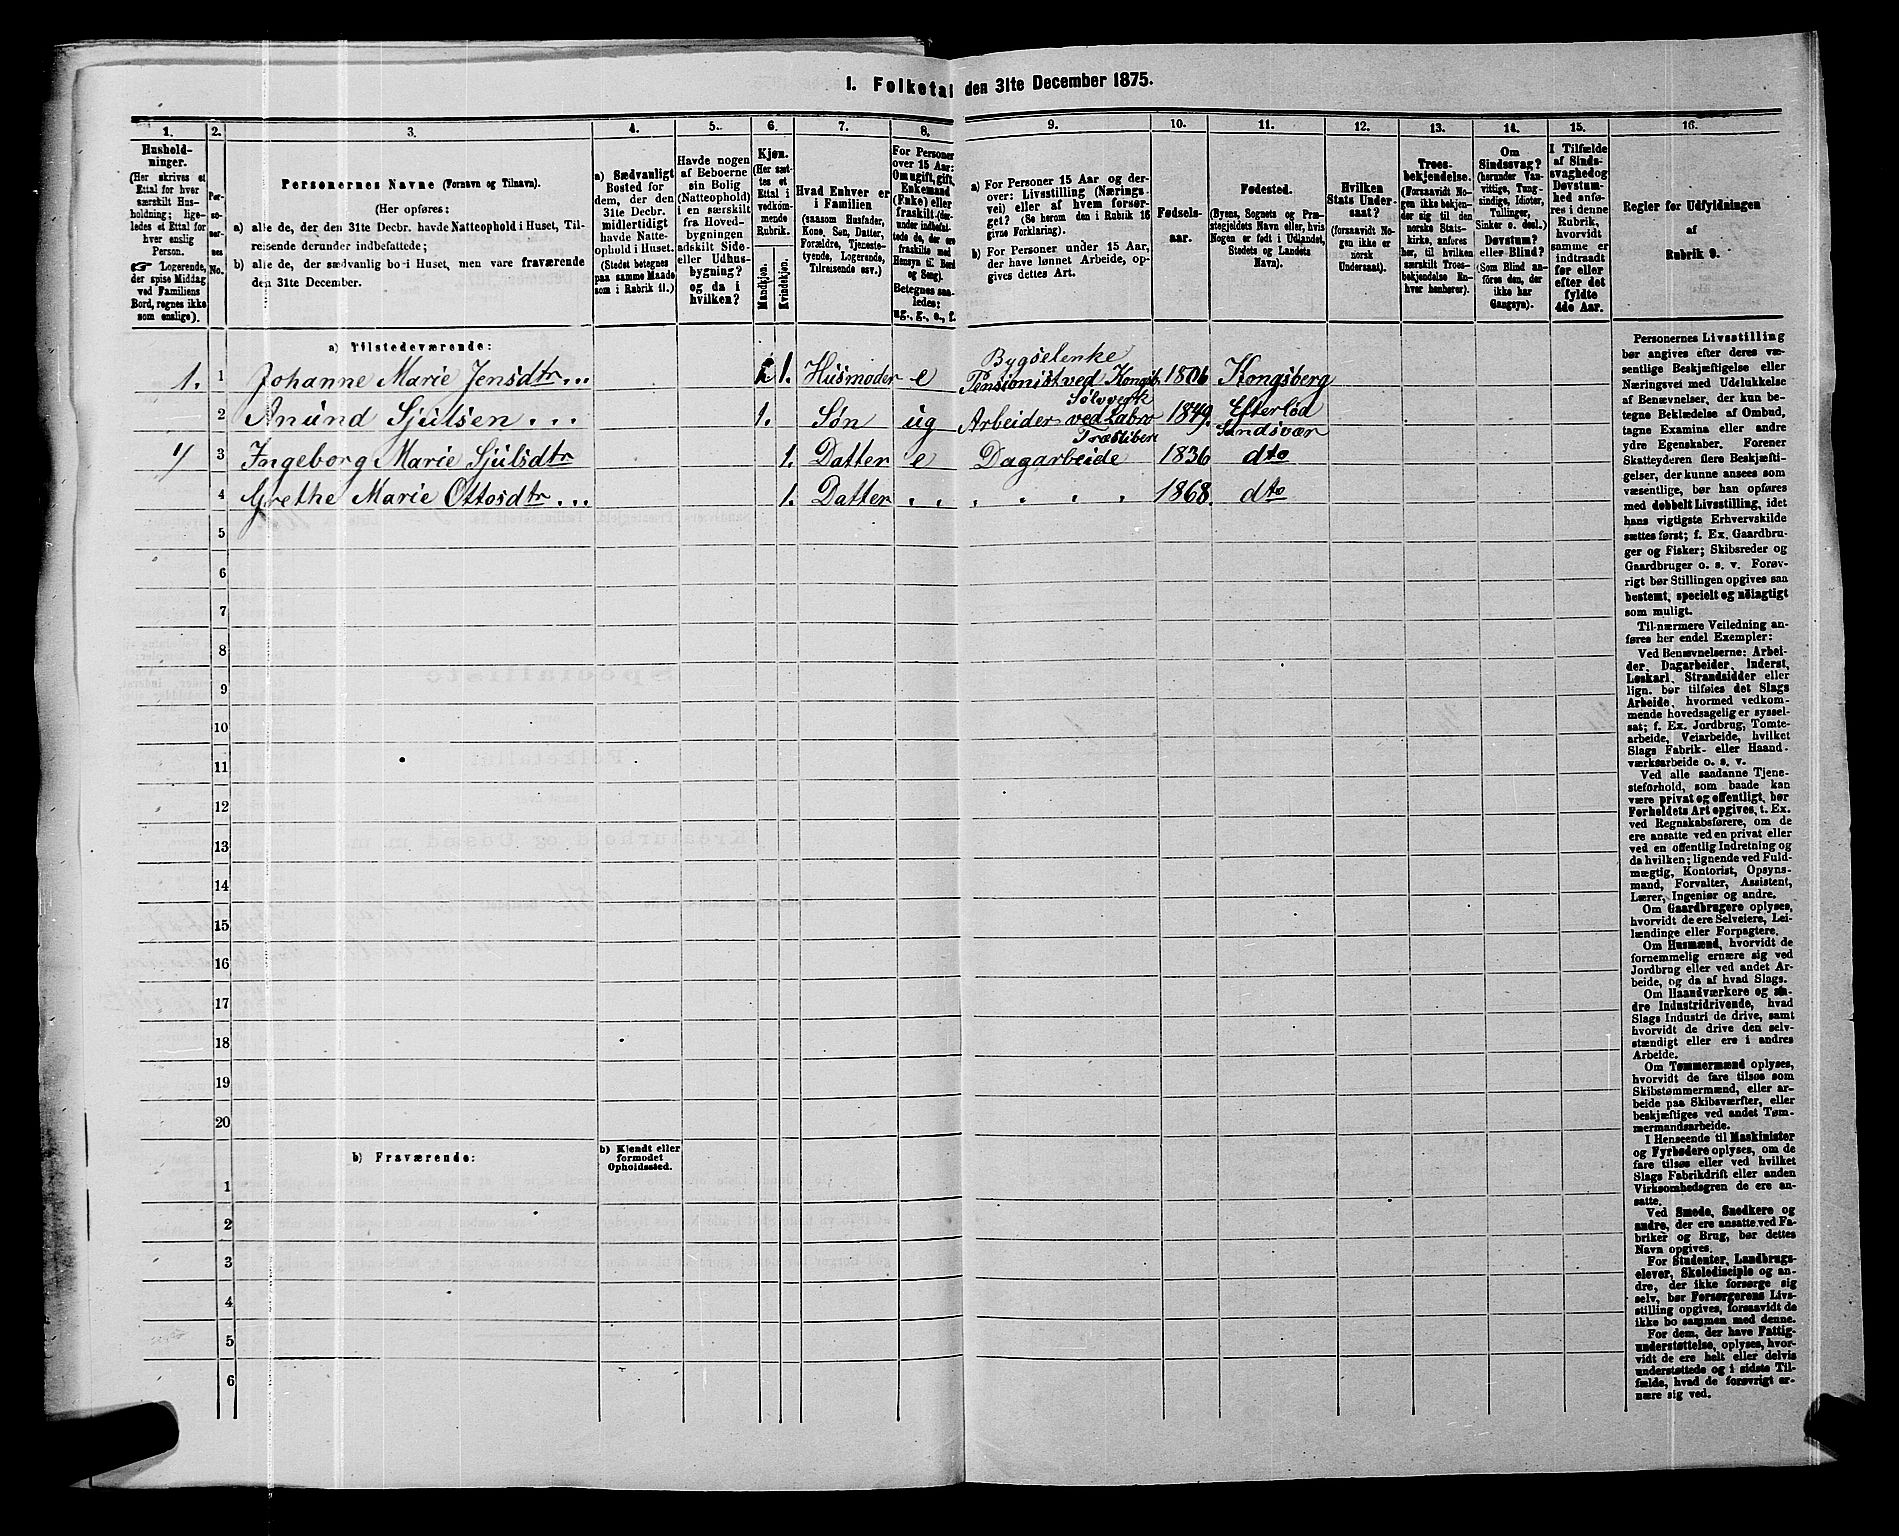 1. Folketal den 31te December 1875.
1.
Hushold-
ninger.
(Her skrives et
Ettal for hver
særskilt Hus-
holdning; lige-
ledes et Ettal for
hver enslig
Person.
☞ Logerende,
der spise Middag
ved Familiens
Bord, regnes ikke
som enslige).
2.
Per-
so-
ner-
nes
No.
3.
Personernes Navne (Fornavn og Tilnavn).
(Her opføres:
a) alle de, der den 31te Decbr. havde Natteophold i Huset, Til-
reisende derunder indbefattede;
b) alle de, der sædvanlig bo i Huset, men vare fraværende
den 31te December.
4.
a) Sædvanligt
Bosted for
dem, der den
31te Decbr.
midlertidigt
havde Natte-
ophold i Huset.
(Stedet betegnes
paa samme Maade
som i Rubrik 11.)
5.
Havde nogen
af Beboerne
sin Bolig
(Natteophold)
i en særskilt
fra Hoved-
bygningen
adskilt Side-
eller Udhus-
bygning?
og da i
hvilken?
6.
Kjøn.
(Her sæt-
tes et
Ettal i
vedkom-
mende
Rubrik.
Mandkjøn.
Kvindekjøn.
7.
Hvad Enhver er
i Familien
(saasom Husfader,
Kone, Søn, Datter,
Forældre, Tjeneste-
tyende, Logerende,
Tilreisende osv.)
8.
For Personer
over 15 Aar:
Om ugift, gift,
Enkemand
(Enke) eller
fraskilt.
Betegnes saa-
ledes:
ug., g., e., f.
9.
a) For Personer 15 Aar og der-
over: Livsstilling (Nærings-
vei) eller af hvem forsør-
get? (Se herom den i Rubrik 16
givne Forklaring).
b) For Personer under 15 Aar,
der have lønnet Arbeide, op-
gives dettes Art.
10.
Fødsels-
aar.
11.
Fødested.
(Byens, Sognets og Præ-
stegjeldets Navn eller, hvis
Nogen er født i Udlandet,
Stedets og Landets
Navn).
12.
Hvilken
Stats Under-
saat?
(forsaavidt No-
gen ikke er
norsk
Undersaat).
13.
Troes-
bekjendelse.
(Forsaavidt No-
gen ikke bekjen-
der sig til den
norske Stats-
kirke, anføres
her, til hvilken
særskilt Troes-
bekjendelse En-
hver henhører).
14.
Om
Sindssvag?
(herunder Van-
vittige, Tung-
sindige, Idioter,
Tullinger,
Sinker o. desl.)
Døvstum?
eller Blind?
(Som Blind an-
føres den, der
ikke har
Gangsyn).
15.
I Tilfælde
af Sinds-
svaghed og
Døvstum-
hed anfø-
res i denne
Rubrik,
hvorvidt
samme er
indtraadt
før eller
efter det
fyldte
4de Aar.
16.
Regler for Udfyldningen
af
Rubrik 9.
a) Tilstedeværende:
1. 1 Johanne Marie Jensdtr... 1. Husmoder e Bygselenke Pensionist ved Kongsb. Sølvverk 1806 Kongsberg
2 Amund Sjulsen . . . 1. Søn ug Arbeider ved Træsliberi 1849. Efterlöd Sandsvær
3 Ingeborg Marie Sjulsdtr 1. Datter e Dagarbeide 1836 dto
4 Grethe Marie Ottosdtr... 1. Datter 1868. dto
5
6
7
8
9
10
11
12
13
14
15
16
17
18
19
20
b) Fraværende:
b) Kjendt eller
formodet
Opholdssted.
1
2
3
4
5
6
Personernes Livsstilling
bør angives efter deres væ-
sentlige Beskjæftigelse eller
Næringsvei med Udelukkelse
af Benævnelser, der kun be-
tegne Beklædelse af Ombud,
tagne Examina eller andre
ydre Egenskaber. Forener
Skatteyderen flere Beskjæfti-
gelser, der kunne ansees som
væsentlige, bør han opføres
med dobbelt Livsstilling, idet
hans vigtigste Erhvervskilde
sættes først; f. Ex. Gaardbru-
ger og Fisker; Skibsreder og
Gaardbruger o. s. v. Forøv-
rigt bør Stillingen opgives saa
bestemt, specielt og nöiagtigt
som muligt.
Til nærmere Veiledning an-
føres her endel Exempler:
Ved Benævnelserne: Arbei-
der, Dagarbeider, Inderst,
Løskarl, Strandsidder eller
lign. bør tilføies det Slags
Arbeide, hvormed vedkom-
mende hovedsagelig er syssel-
sat; f. Ex. Jordbrug, Tomte-
arbeide, Veiarbeide, hvilket
Slags Fabrik- eller Haand-
værksarbeide o. s. v.
Ved alle saadanne Tjene-
steforhold, som baade kan
være privat og offentligt, bør
Forholdets Art opgives, t. Ex.
ved Regnskabsførere, om de
ere ansatte ved en privat eller
ved en offentlig Indretning og
da hvilken; lignende ved Fuld-
mægtig, Kontorist, Opsyns-
mand, Forvalter, Assistent,
Lærer, Ingeniør og andre.
Om Gaardbrugere oplyses,
hvorvidt de ere Selveiere, Lei-
lændinge eller Forpagtere.
Om Husmænd, hvorvidt de
fornemmelig ernære sig ved
Jordbrug eller ved andet Ar-
beide, og da af hvad Slags.
Om Haandværkere og an-
dre Industridrivende, hvad
Slags Industri de drive, samt
hvorvidt de drive den selv-
stændigt eller ere i andres
Arbeide.
Om Tømmermænd oplyses,
hvorvidt de fare tilsøs som
Skibstømmermænd, eller ar-
beide paa Skibsværfter, eller
beskjæftiges ved andet Tøm-
mermandsarbeide.
I Henseende til Maskinister
og Fyrbødere oplyses, om de
fare tilsøs eller ved hvilket
Slags Fabrikdrift eller anden
Virksomhedsgren de ere an-
satte.
Ved Smede, Snedkere og
andre, der ere ansatte ved Fa-
briker og Brug, bør dettes
Navn opgives.
For Studenter, Landbrugs-
elever, Skoledisciple og an-
dre, der ikke forsørge sig
selv, bør Forsørgerens Livs-
stilling opgives, forsaavidt de
ikke bo sammen med denne.
For dem, der have Fattig-
understøttelse, oplyses, hvor-
vidt de ere helt eller delvis
understøttede og i sidste Til-
fælde, hvad de forøvrigt er-
nære sig ved.